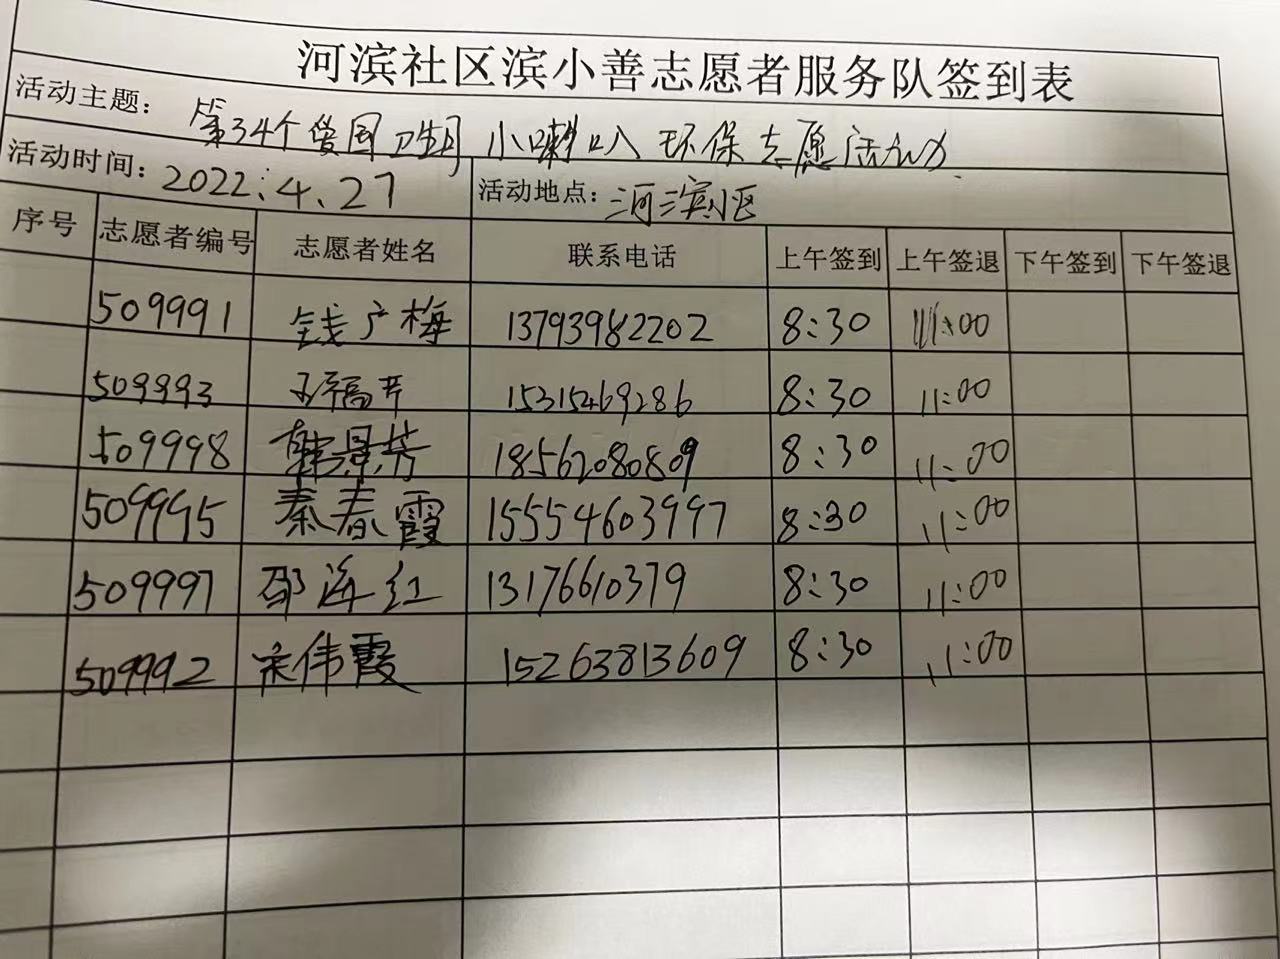 河滨社区滨小善志愿者服务队签到表
活动主题： 第34个爱国卫生月 小喇叭 环保志愿活动
活动时间： 2022.4.27 活动地点： 河滨小区
序号 志愿者编号 志愿者姓名 联系电话 上午签到 上午签退 下午签到 下午签退
509991 钱广梅 13793982202 8:30 11:00
509993 福 15315469286 8:30 11:00
509998 韩景芳 18562080809 8:30 11:00
509995 秦春霞 15554603997 8:30 11:00
509997 邵海红 13176610379 8:30 11:00
509992 宋伟霞 15263813609 8:30 11:00